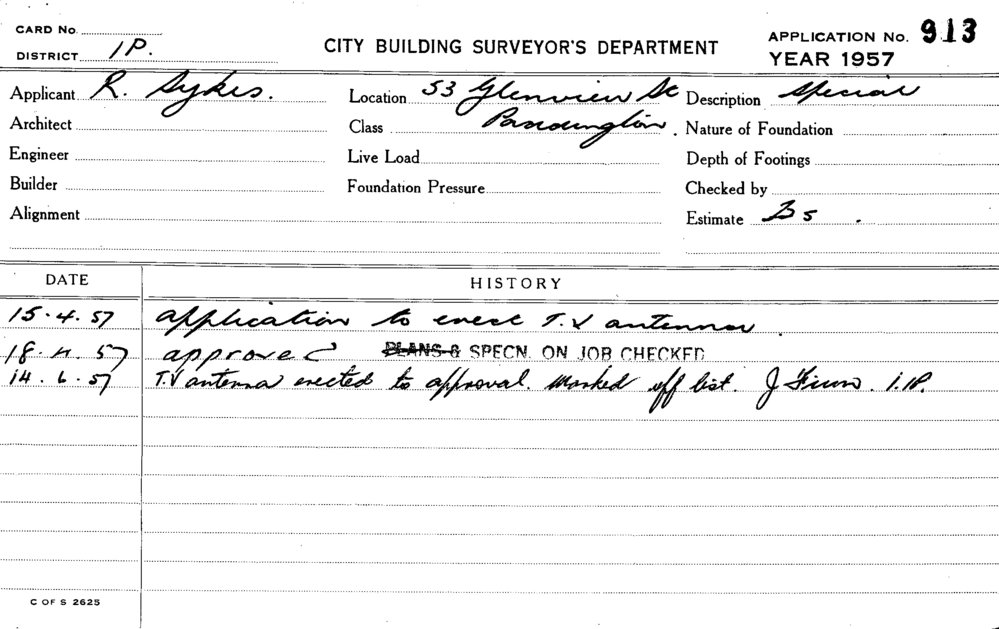 CARD No.
DISTRICT 1P.
CITY BUILDING SURVEYOR'S DEPARTMENT
APPLICATION No. 913
YEAR 1957
Applicant R. Sykes.
Location 53 Glenview St
Description Special
Architect
Class Paddington.
Nature of Foundation
Engineer
Live Load
Depth of Footings
Builder
Foundation Pressure
Checked by
Alignment
Estimate
DATE HISTORY
15.4.57 application to erect T.V antenna.
18.4.57 approved PLANS & SPECN. ON JOB CHECKED
14.6.57 T.V antenna erected to approval. Marked off list. J 1.P.
C OF S 2625